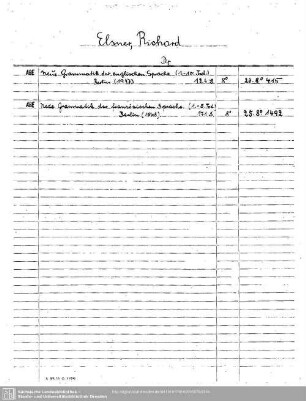 Elsner, Richard
Dr.
ABE Neue Grammatik der englischen Sprache (1.-10. Tsd.)
Berlin 8° 28. 8° 415
ABE Neue Grammatik der französischen Sprache (1.-5. Tsd.)
Berlin 8° 28. 8° 1492
Sächsische Landesbibliothek -
Staats- und Universitätsbibliothek Dresden